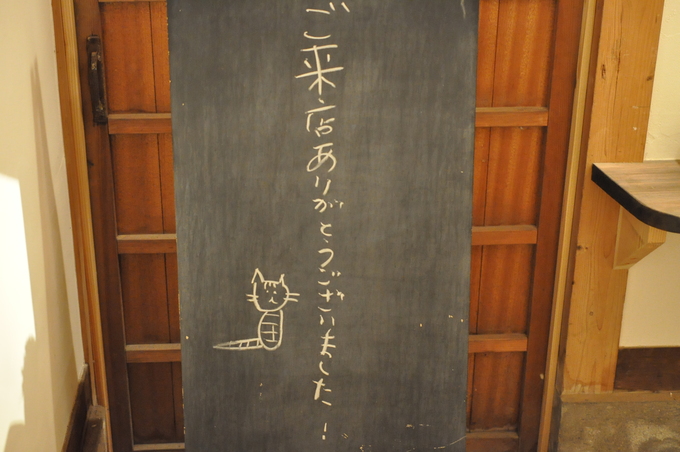 ご来店ありがとうございました!